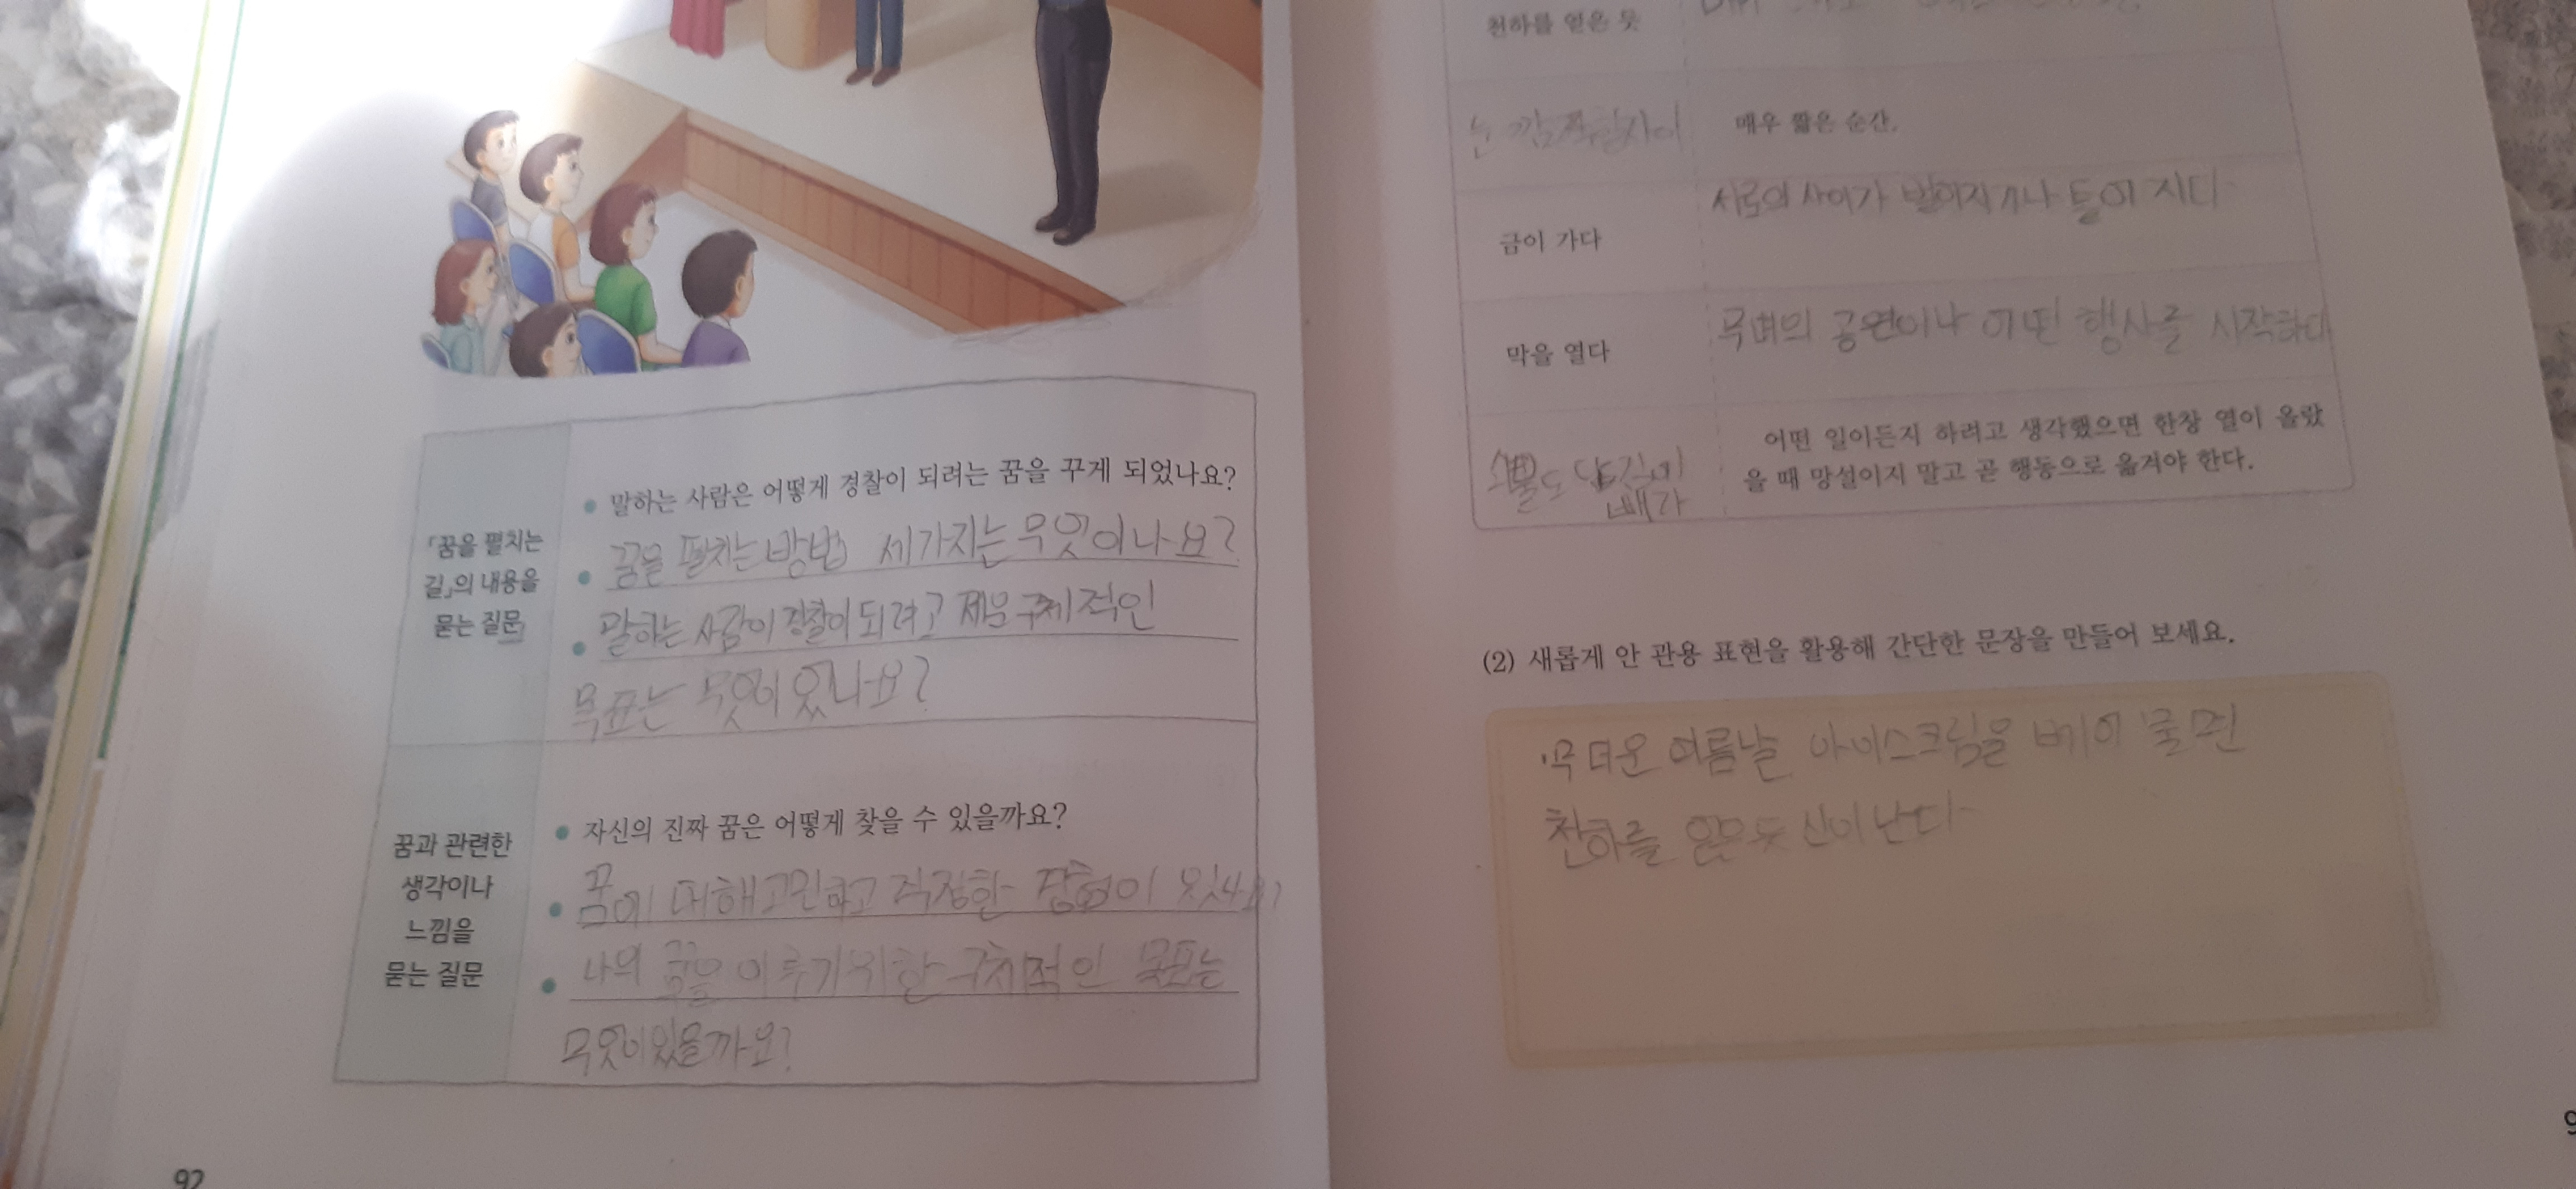 「꿈을 펼치는
길」의 내용을
묻는 질문
말하는 사람은 어떻게 경찰이 되려는 꿈을 꾸게 되었나요?
꿈을 펼치는 방법 세가지는 무엇이나요?
말하는 사람이 경찰이 되려고 제운 구체적인
목표는 무엇이 있나요?
꿈과 관련한
생각이나
느낌을
묻는 질문
자신의 진짜 꿈은 어떻게 찾을 수 있을까요?
꿈에 대해 고민하고 걱정한
나의 꿈을 이루기위한 구체적인 목표는
무엇이있을까요?
92
천하를 얻은 듯
눈 깜짝할사이
매우 짧은 순간.
금이 가다
서로의 사이가 벌어지거나 틀어지다
막을 열다
무대의 공연이나 어떤 행사를 시작하다
쇠뿔도 단김에
빼라
어떤 일이든지 하려고 생각했으면 한창 열이 올랐
을 때 망설이지 말고 곧 행동으로 옮겨야 한다.
(2) 새롭게 안 관용 표현을 활용해 간단한 문장을 만들어 보세요.
무더운 여름날 아이스크림을 베어 물면
천하를 얻은듯 신이난다